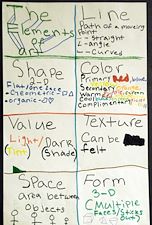 The
Elements
of
art
Line
Path of a moving
Point
- Straight
L - angle
- Curved
Shape
2-D
Flat/one face
• Geometric
• organic
Color
Primary red blue
Secondary
Warm
Cool
Complimentary
Value
Light/
(Tint)
Dark
(Shade)
Texture
Can be
felt
Space
area between
objects
Form
3-D
(Multiple
Faces/Sticks
Out)